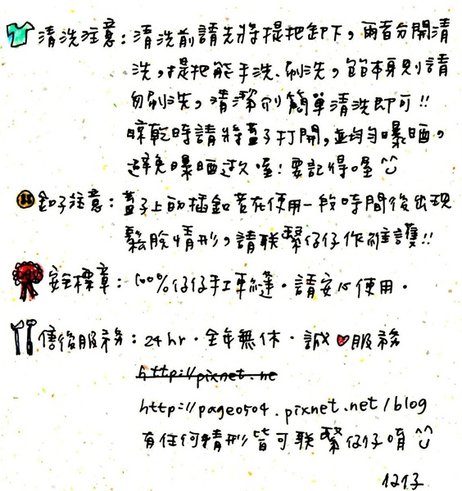 清洗注意：清洗前請先將提把卸下，兩者分開清
洗，提把能手洗、刷洗，節本身則請
勿刷洗，清潔劑簡單清洗即可!!
晾乾時請將蓋子打開，並均勻曝晒，
避免曝晒過久喔!要記得喔
釦子注意：蓋子上的插釦若在使用一段時間後出現
鬆脫情形，請联繫仔仔作維護!!
安全標章：100%仔仔手工車縫。請安心使用。
售後服務：24hr.全年無休.誠♥服務
http://pixnet.ne
http://page0504.pixnet.net/blog
有任何情形皆可联繫仔仔唷